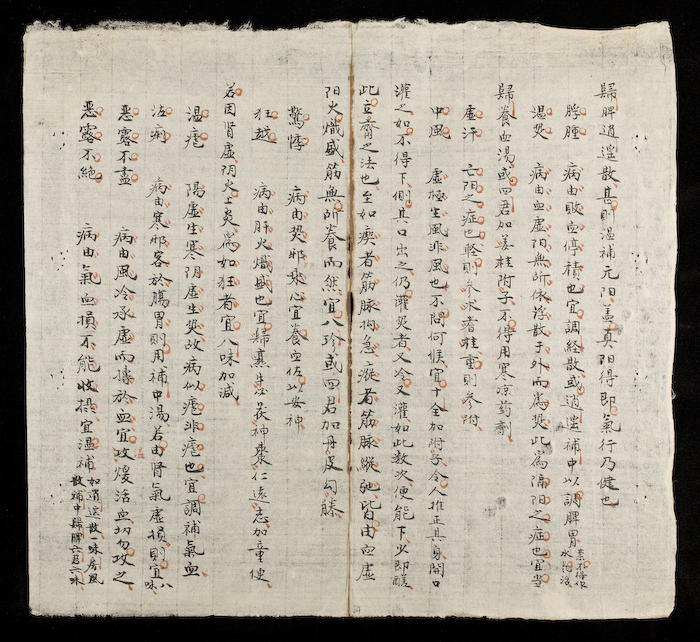 歸脾逍遥散甚則温補元阳盖真阳得即氣行乃健也
腫腫 病由敗血停積也宜調経散或逍遥補中以調脾胃
温热 病由血虚阳無所依浮散于外而為热此為隔阳之症也宜当
歸養血湯或四君加姜桂附子不得用寒凉药剂
虚汗 亡阳之症也軽則参术耆桂重則参附
中風 虚極生風非風也不問何候宜十全加附子令人推正其身開口
灌之如不得下側其口出之仍灌热者又冷又灌如此数次便能下少即醒
此立斎之法也至如瘈者筋脉拘急瘲者筋脉縦弛皆由血虚
阳火熾盛筋無所養而然宜八珍或四君加丹皮勾藤
驚悸 病由热邪乘心宜養血佐以安神
狂越 病由肝火熾盛也宜歸熏生茯神棗仁遠志加童便
若因腎虚阴火上炎為如狂者宜八味加减
温瘧 阳虚生寒阴虚生热故病似瘧非瘧也宜調補氣血
泣痢 病由寒邪客於腸胃則用補中湯若由腎氣虚損則宜八味
惡露不盡 病由風冷承虚而搏於血宜攻煖活血切勿攻之
惡露不絶 病由氣血損不能收摂宜温補 如逍遥散一味居風
散補中歸脾六君六味